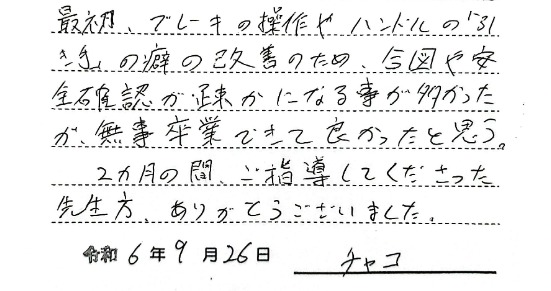 最初、ブレーキの操作やハンドルの「引
き手」の癖の改善のため、合図や安
全確認が疎かになる事が多かった
が、無事卒業できて良かったと思う。
2ヵ月の間、ご指導してくださった
先生方、ありがとうございました。
令和6年9月26日 チャコ